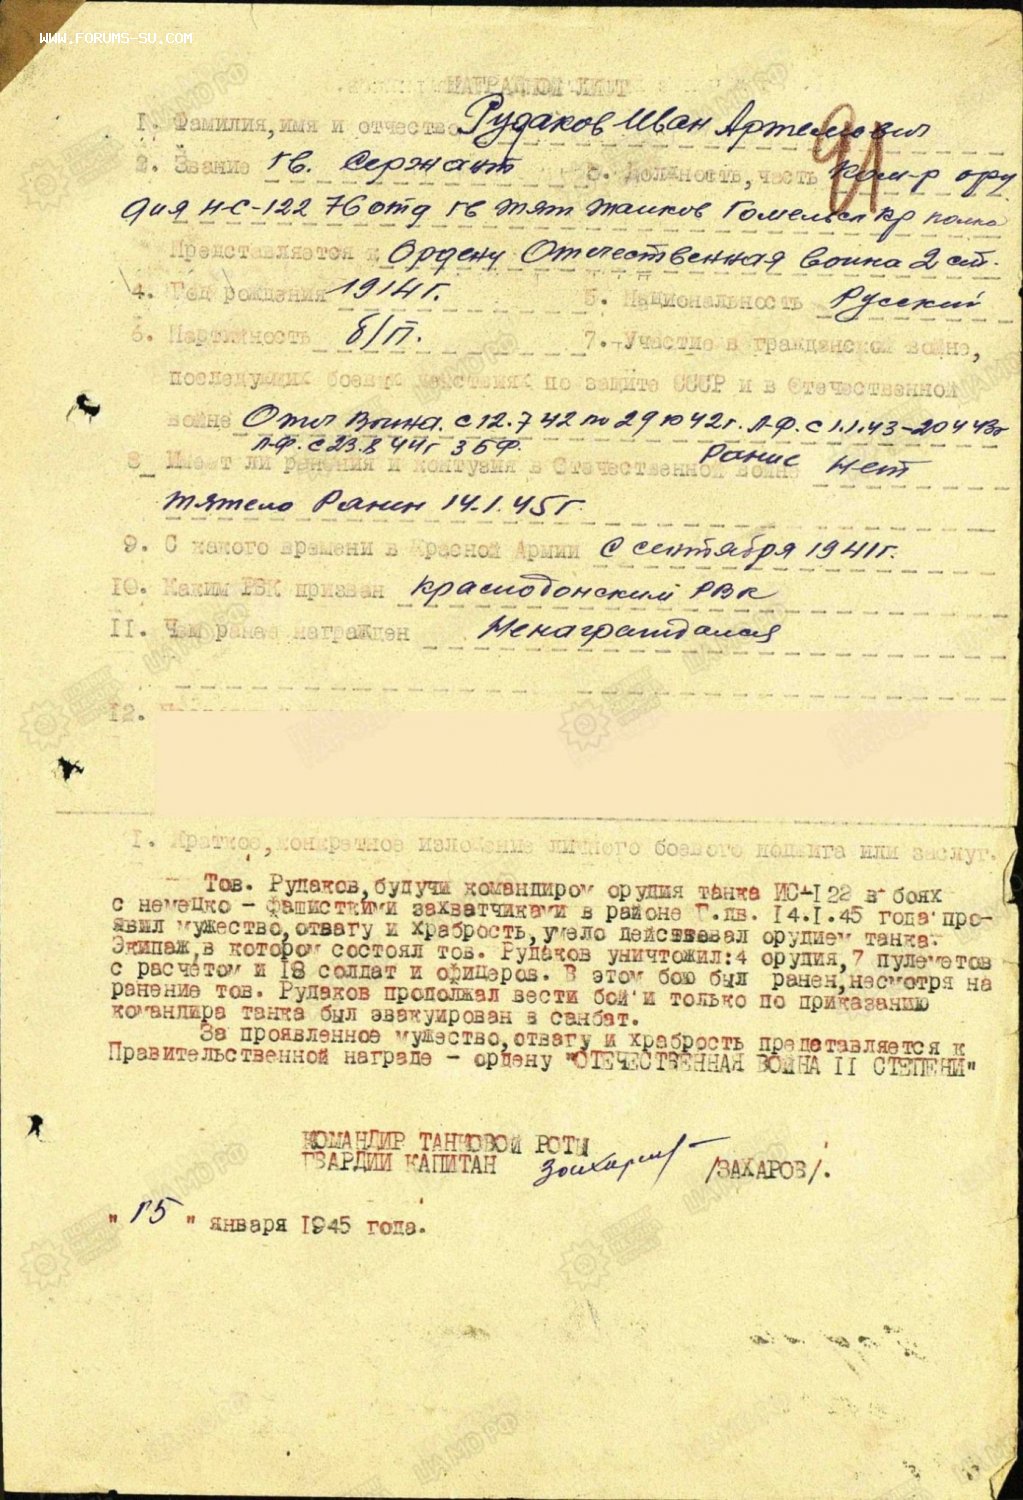 WWW.FORUMS-SU.COM
НАГРАДНОЙ ЛИСТ
1. Фамилия, имя и отчество Рудаков Иван Артемович
2. Звание гв. Сержант 3. Должность, часть Ком-р ору
дия И-С-122 76 отд гв тят Гомельск Кр полка
Представляется к Ордену Отечественная война 2 ст.
4. Год рождения 1914 г. 5. Национальность Русский
6. Партийность б/п. 7. Участие в гражданской войне,
последующих боевых действиях по защите СССР и в Отечественной
войне Отеч Война. с 12.7 42 по 29 10 42 г. Л.Ф. с 1.1.43-20 4 43г
Л.Ф. с 23.8 44г 3 БФ.
8 Имеет ли ранения и контузия в Отечественной войне Ранее нет
тяжело Ранин 14.1.45 г
9. С какого времени в Красной Армии с сентября 1941 г.
10. Каким РВК призван Краснодонский РВК
11. Чем ранее награжден Ненаграждался
12.
1. Краткое, конкретное изложение личного боевого подвига или заслуг.
Тов. Рудаков, будучи командиром орудия танка ИС-122 в боях
с немецко - фашисткими захватчиками в районе Г.дв. 14.1.45 года про-
явил мужество, отвагу и храбрость, умело действовал орудием танка.
Экипаж, в котором состоял тов. Рудаков уничтожил: 4 орудия, 7 пулеметов
с расчетом и 18 солдат и офицеров. В этом бою был ранен, несмотря на
ранение тов. Рудаков продолжал вести бой и только по приказанию
командира танка был эвакуирован в санбат.
За проявленное мужество, отвагу и храбрость представляется к
Правительственной награде - ордену "ОТЕЧЕСТВЕННАЯ ВОЙНА II СТЕПЕНИ"
КОМАНДИР ТАНКОВОЙ РОТЫ
ГВАРДИИ КАПИТАН Захаров /ЗАХАРОВ/.
" 15 " января 1945 года.